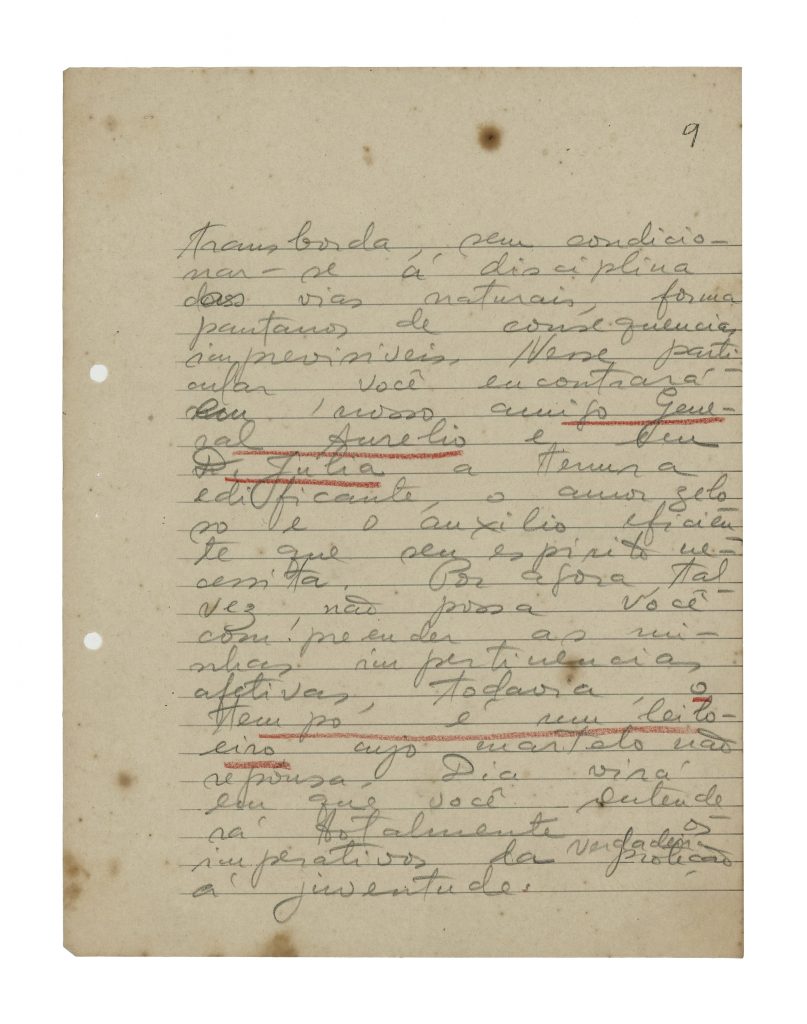 9
transborda, sem condicio-
nar-se á disciplina
das vias naturais, forma
pantanos de consequencias
imprevisiveis. Nesse parti
cular você encontrará
em nosso amigo Gene-
ral Aurelio e em
D. Julia a ternura
edificante, o amor zelo
so e o auxilio eficien
te que seu espirito ne-
cessita. Por agora tal
vez não possa você
compreender as mi-
nhas impertinencias
afetivas, todavia o
tempo é um leilo-
eiro cujo martelo não
repousa. Dia virá
em que você entende
rá totalmente os
imperativos da verdadeira proteção
á juventude.